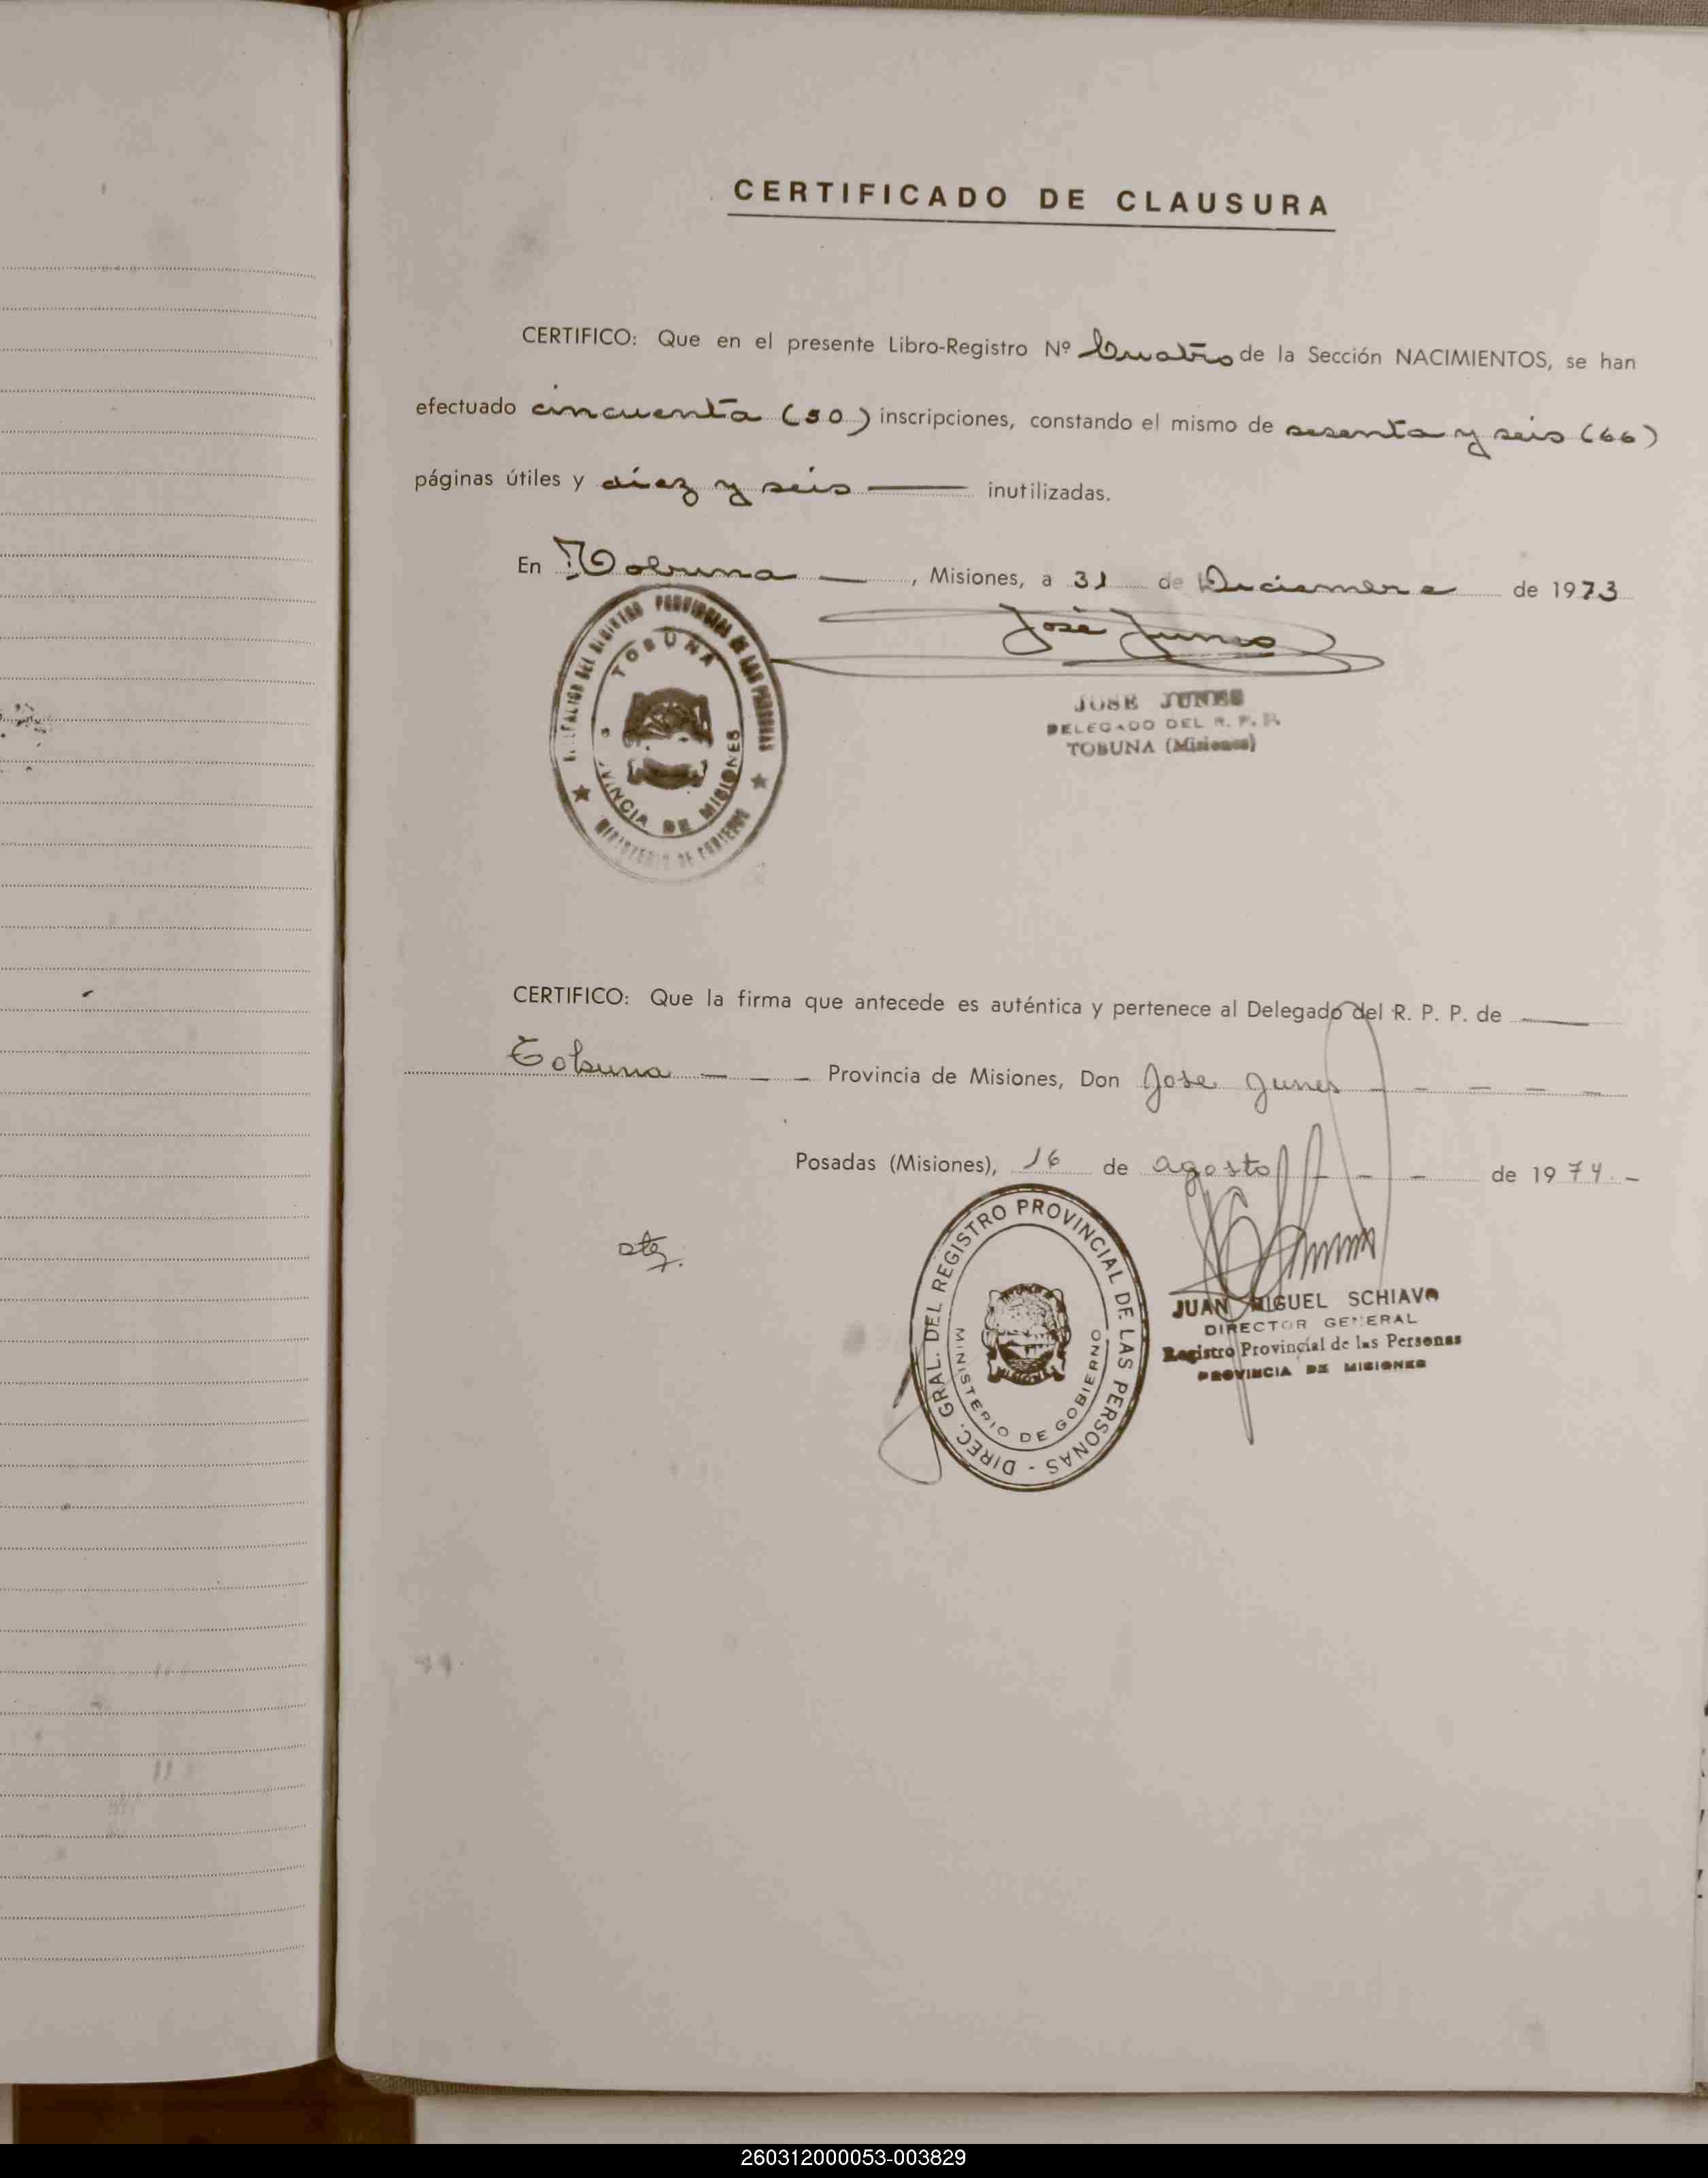 CERTIFICADO DE CLAUSURA
CERTIFICO: Que en el presente Libro-Registro Nº Cuatro de la Sección NACIMIENTOS, se han
efectuado cincuenta (50) inscripciones, constando el mismo de sesenta y seis (66)
páginas útiles y diez y seis — inutilizadas.
En Tobuna —, Misiones, a 31 de Diciembre de 1973
José Junes
JOSE JUNES
DELEGADO DEL R. P. P.
TOBUNA (Misiones)
DEL REGISTRO PROVINCIAL DE LAS PERSONAS
TOBUNA
PROVINCIA DE MISIONES
MINISTERIO DE GOBIERNO
CERTIFICO: Que la firma que antecede es auténtica y pertenece al Delegado del R. P. P. de —
Tobuna — — — Provincia de Misiones, Don Jose Junes — — — —
Posadas (Misiones), 16 de agosto — — — de 1974.-
DIREC. GRAL. DEL REGISTRO PROVINCIAL DE LAS PERSONAS -
MINISTERIO DE GOBIERNO
MISIONES
JUAN MIGUEL SCHIAVO
DIRECTOR GENERAL
Registro Provincial de las Personas
PROVINCIA DE MISIONES
260312000053-003829